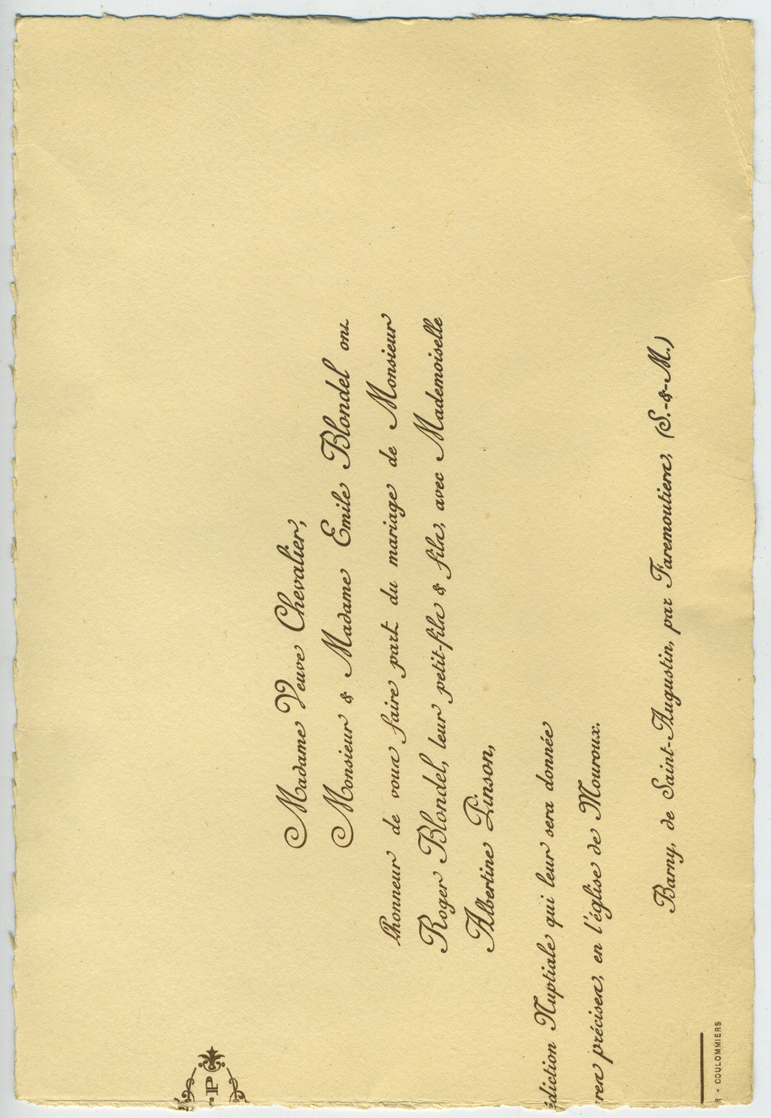 P
Madame Veuve Chevalier,
Monsieur & Madame Emile Blondel ont
l'honneur de vous faire part du mariage de Monsieur
Roger Blondel, leur petit-fils & fils, avec Mademoiselle
Albertine Pinson,
édiction Nuptiale qui leur sera donnée
res précises, en l'église de Mouroux.
Barny, de Saint-Augustin, par Faremoutiers, (S.-&-M.)
R - COULOMMIERS